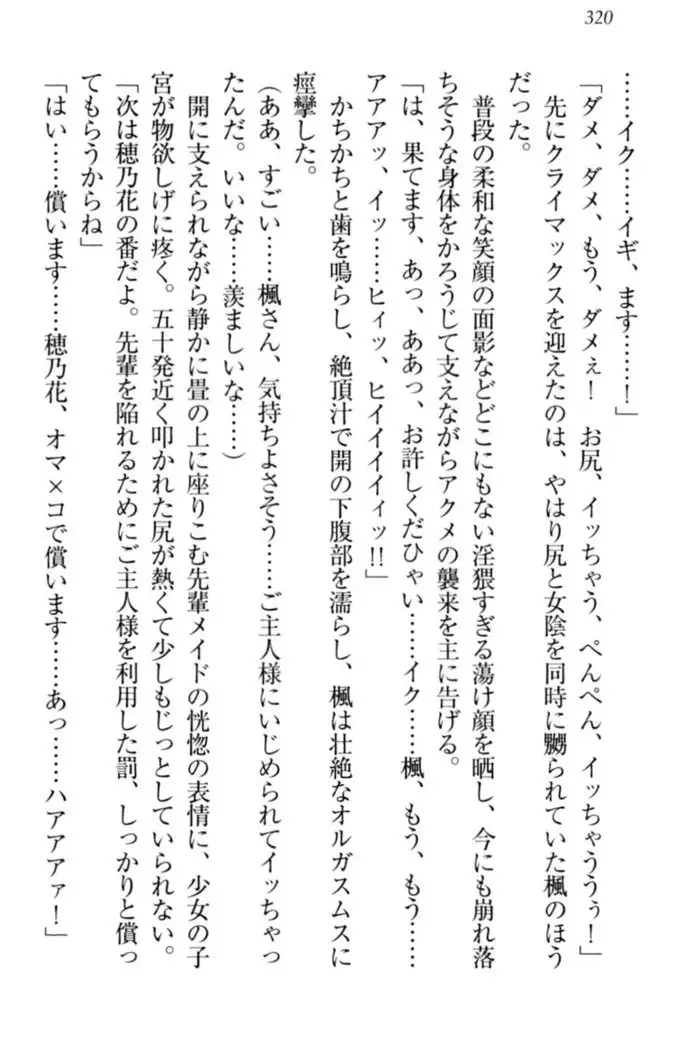 320
……イク……イギ、ます……！」
「ダメ、ダメ、もう、ダメぇ！　お尻、イッちゃう、ぺんぺん、イッちゃううぅ！」
先にクライマックスを迎えたのは、やはり尻と女陰を同時に嬲られていた楓のほう
だった。
普段の柔和な笑顔の面影などどこにもない淫猥すぎる蕩け顔を晒し、今にも崩れ落
ちそうな身体をかろうじて支えながらアクメの襲来を主に告げる。
「は、果てます、あっ、ああっ、お許しくだひゃい……イク……楓、もう、もう……
アアアッ、イッ……ヒィッ、ヒイイイイィッ!!」
かちかちと歯を鳴らし、絶頂汁で開の下腹部を濡らし、楓は壮絶なオルガスムスに
痙攣した。
（ああ、すごい……楓さん、気持ちよさそう……ご主人様にいじめられてイッちゃっ
たんだ。いいな……羨ましいな……）
開に支えられながら静かに畳の上に座りこむ先輩メイドの恍惚の表情に、少女の子
宮が物欲しげに疼く。五十発近く叩かれた尻が熱くて少しもじっとしていられない。
「次は穂乃花の番だよ。先輩を陥れるためにご主人様を利用した罰、しっかりと償っ
てもらうからね」
「はい……償います……穂乃花、オマ×コで償います……あっ……ハアアアァ！」